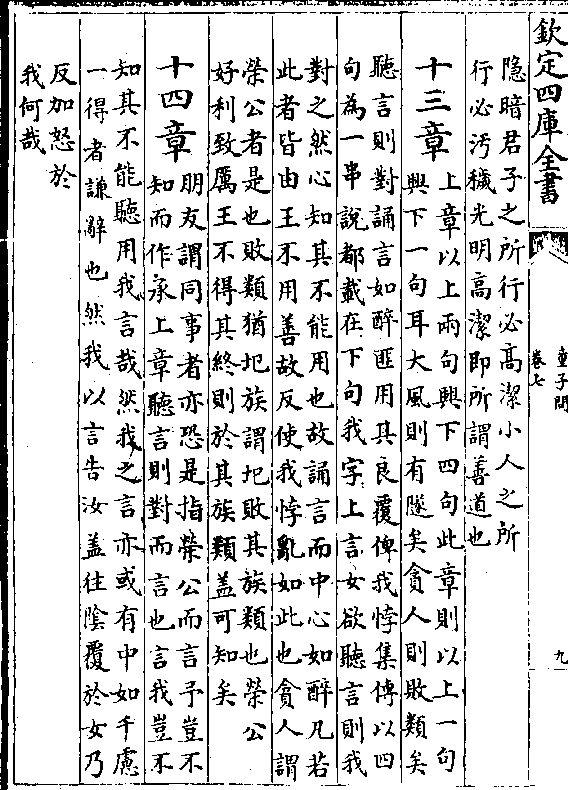 欽定四庫全書
童子問
卷七
九
隐暗君子之所行必高潔小人之所
行必汚穢光明高潔即所謂善道也
十三章
上章以上兩句興下四句此章則以上一句
興下一句耳大風則有隧矣貪人則敗類矣
聽言則對誦言如醉匪用其良覆俾我悖集傳以四
句為一串說都截在下句我字上言女欲聽言則我
對之然心知其不能用也故誦言而中心如醉凡若
此者皆由王不用善故反使我悖亂如此也貪人謂
榮公者是也敗類猶圯族謂圯敗其族類也榮公
好利致厲王不得其終則於其族類盖可知矣
十四章
朋友謂同事者亦恐是指榮公而言予豈不
知而作承上章聽言則對而言也言我豈不
知其不能聽用我言哉然我之言亦或有中如千慮
一得者謙辭也然我以言告汝盖往陰覆於女乃
反加怒於
我何哉